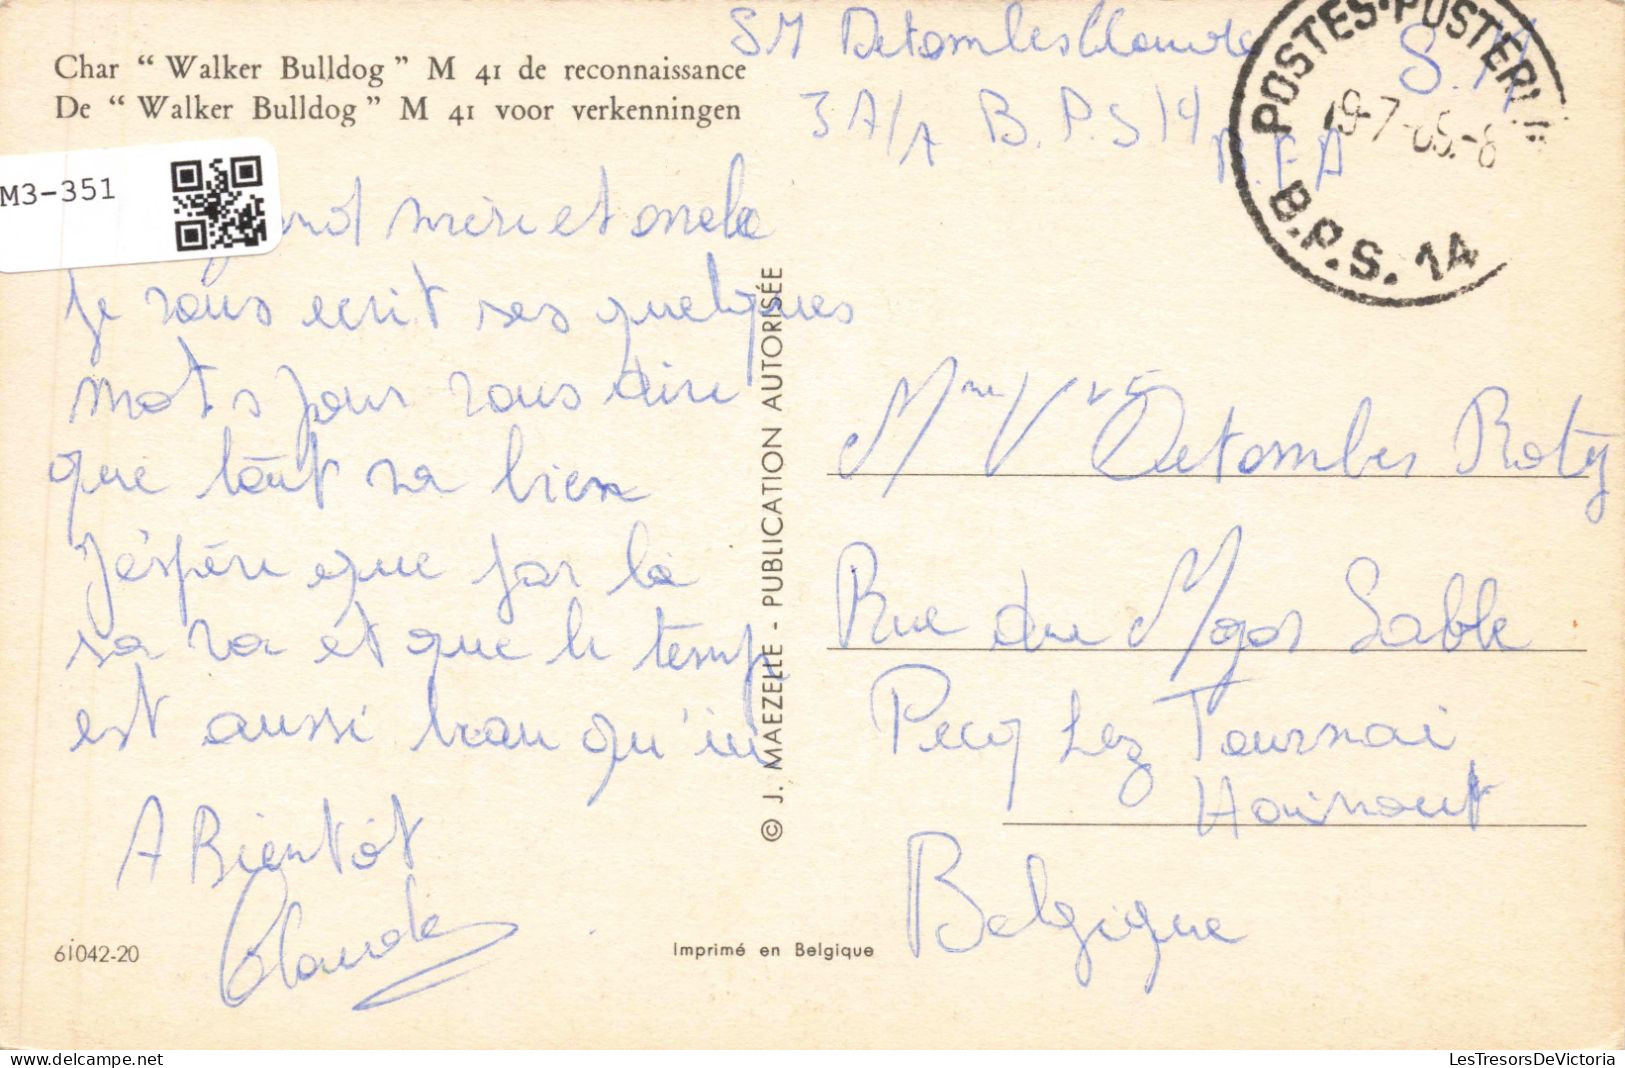 Char “ Walker Bulldog ” M 41 de reconnaissance
De “ Walker Bulldog ” M 41 voor verkenningen
M3-351
SM Detombes Claude
3 A/A B.P.S 14
S.M
POSTES-POSTERIJ
19-7-65.-8
B.P.S. 14
mère et oncle
Je vous ecrit ses quelques
mots pour vous dire
que tout va bien
J'espère que par là
sa va et que le temp
est aussi beau qu'ici
A Bientôt
Claude
61042-20
© J. MAEZELLE - PUBLICATION AUTORISÉE
Imprimé en Belgique
Mme Vve Detombes Roty
Rue du Mgos Sable
Pecq Lez Tournai
Hainaut
Belgique
LesTresorsDeVictoria
delcampe.net